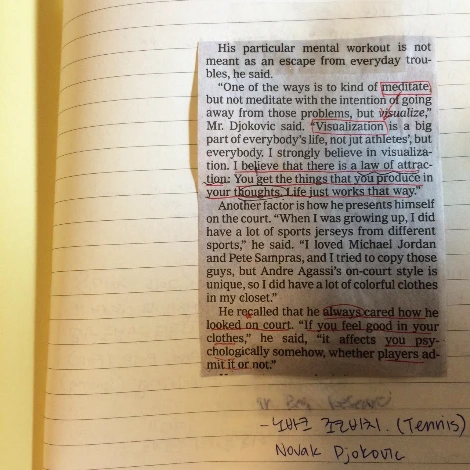 His particular mental workout is not
meant as an escape from everyday trou-
bles, he said.
"One of the ways is to kind of meditate,
but not meditate with the intention of going
away from those problems, but visualize,"
Mr. Djokovic said. "Visualization is a big
part of everybody's life, not jut athletes', but
everybody. I strongly believe in visualiza-
tion. I believe that there is a law of attrac-
tion: You get the things that you produce in
your thoughts. Life just works that way."
Another factor is how he presents himself
on the court. "When I was growing up, I did
have a lot of sports jerseys from different
sports," he said. "I loved Michael Jordan
and Pete Sampras, and I tried to copy those
guys, but Andre Agassi's on-court style is
unique, so I did have a lot of colorful clothes
in my closet."
He recalled that he always cared how he
looked on court. "If you feel good in your
clothes," he said, "it affects you psy-
chologically somehow, whether players ad-
mit it or not."
- 노바크 조코비치. (Tennis)
Novak Djokovic